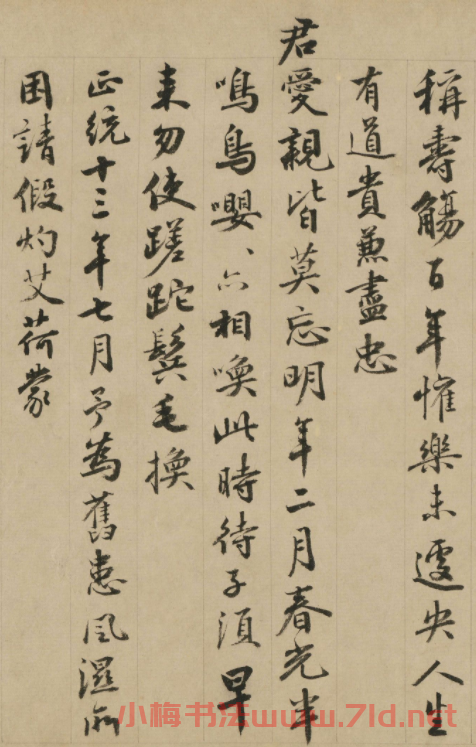 稱壽觴百年懽樂未遽央人生
有道貴兼盡忠
君愛親皆莫忘明年二月春光半
鳴鳥嚶、亦相喚此時待子須早
来勿使蹉跎鬂毛換
正統十三年七月予為舊患風濕所
困請假灼艾荷蒙
小梅书法www.7ld.net